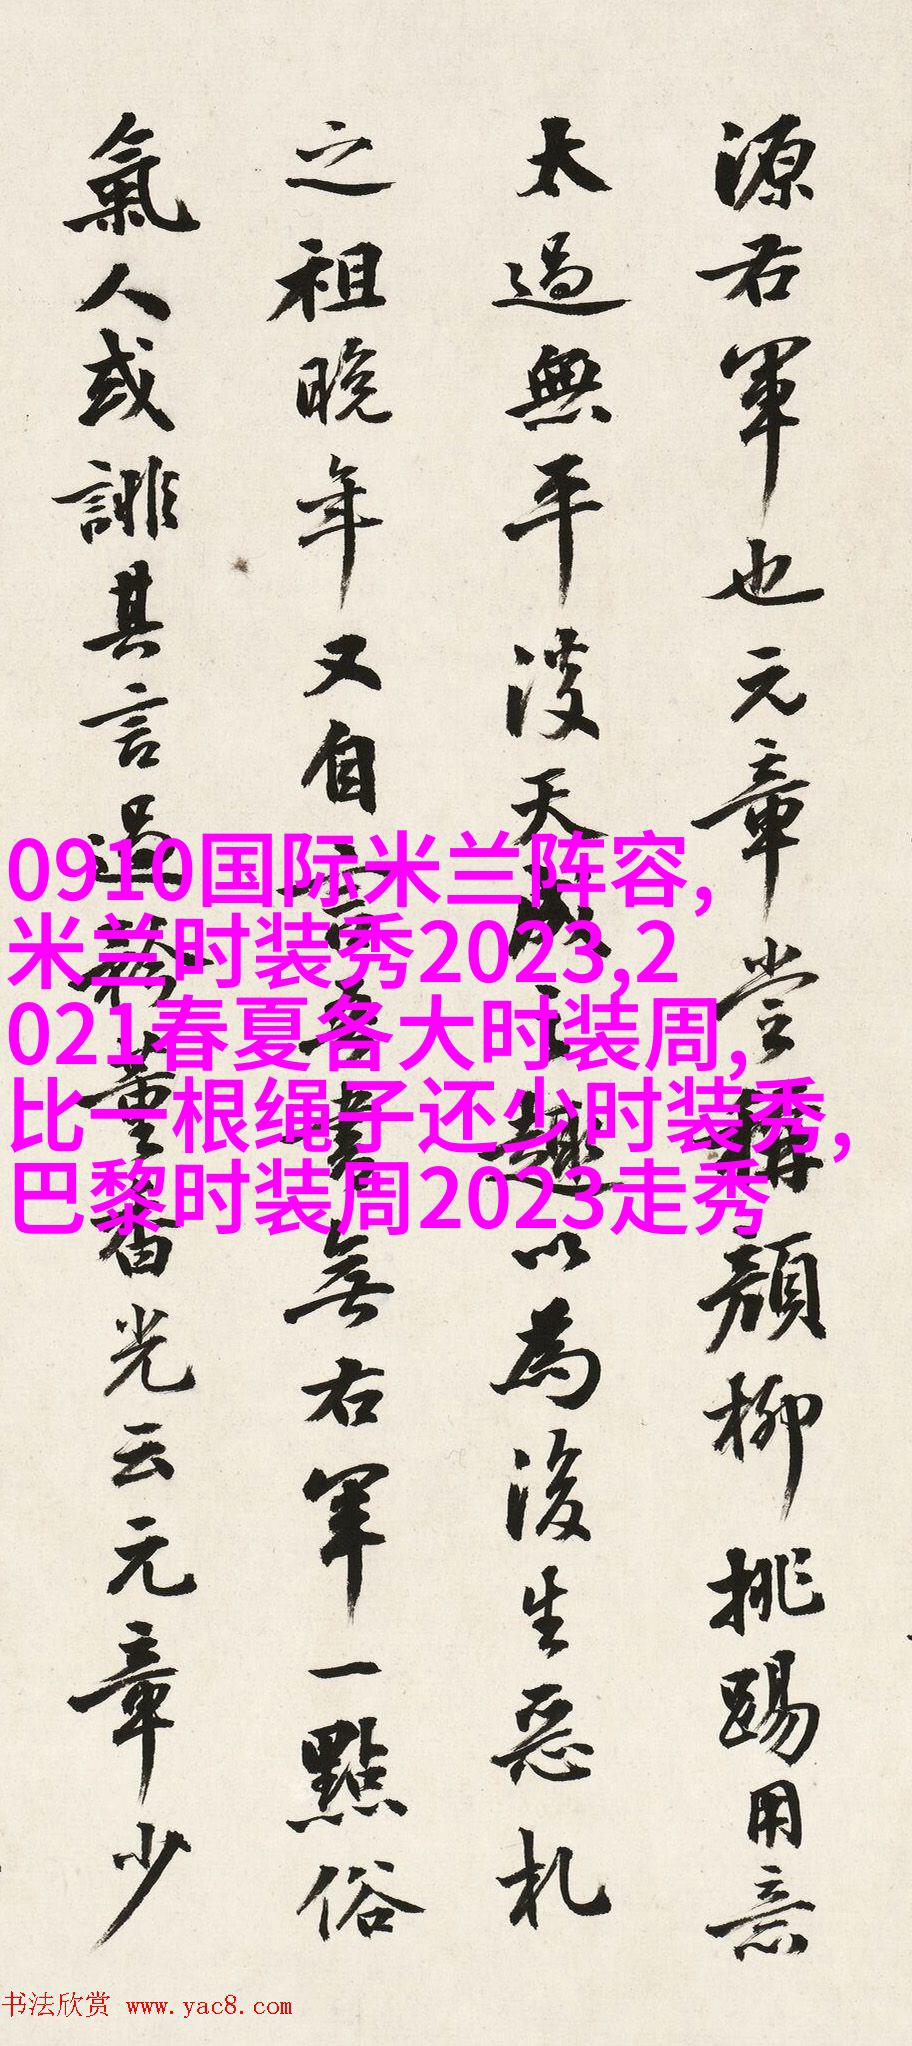 源右軍也元章嘗稱顏柳挑踢用意
太過無平淡天成之趣以為後生惡札
之祖晚年又自言吾書無右軍一點俗
氣人或誹其言過矜董香光云元章少
0910国际米兰阵容,
米兰时装秀2023,2
021春夏各大时装周,
比一根绳子还少时装秀,
巴黎时装周2023走秀
书法欣赏 www.yac8.com